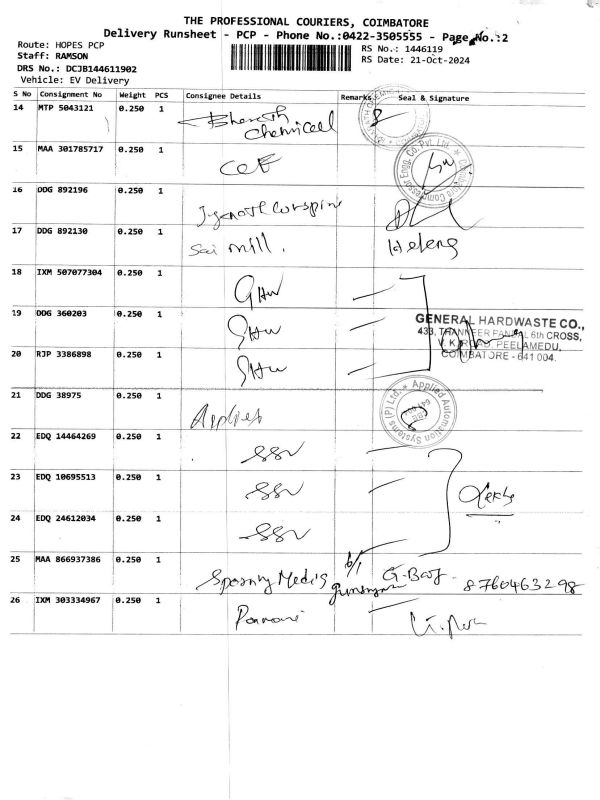 THE PROFESSIONAL COURIERS, COIMBATORE
Delivery Runsheet - PCP - Phone No.:0422-3505555 - Page No.:2
Route: HOPES PCP
Staff: RAMSON
DRS No.: DCJB144611902
Vehicle: EV Delivery
RS No.: 1446119
RS Date: 21-Oct-2024
S No Consignment No Weight PCS Consignee Details Remarks Seal & Signature
14 MTP 5043121 0.250 1 Bharath Chemicell
15 MAA 301785717 0.250 1
16 DDG 892196 0.250 1
17 DDG 892130 0.250 1 Sai mill. Heleng
18 IXM 507077304 0.250 1 GHW
19 DDG 360203 0.250 1 GHW
20 RJP 3386898 0.250 1 GHW
GENERAL HARDWASTE CO.,
6th CROSS,
PEELAMEDU,
COIMBATORE - 641 004.
21 DDG 38975 0.250 1
Applied Automation Systems (P) Ltd.
22 EDQ 14464269 0.250 1 SSV
23 EDQ 10695513 0.250 1 SSV
24 EDQ 24612034 0.250 1 SSV
25 MAA 866937386 0.250 1 8760463298
26 IXM 303334967 0.250 1